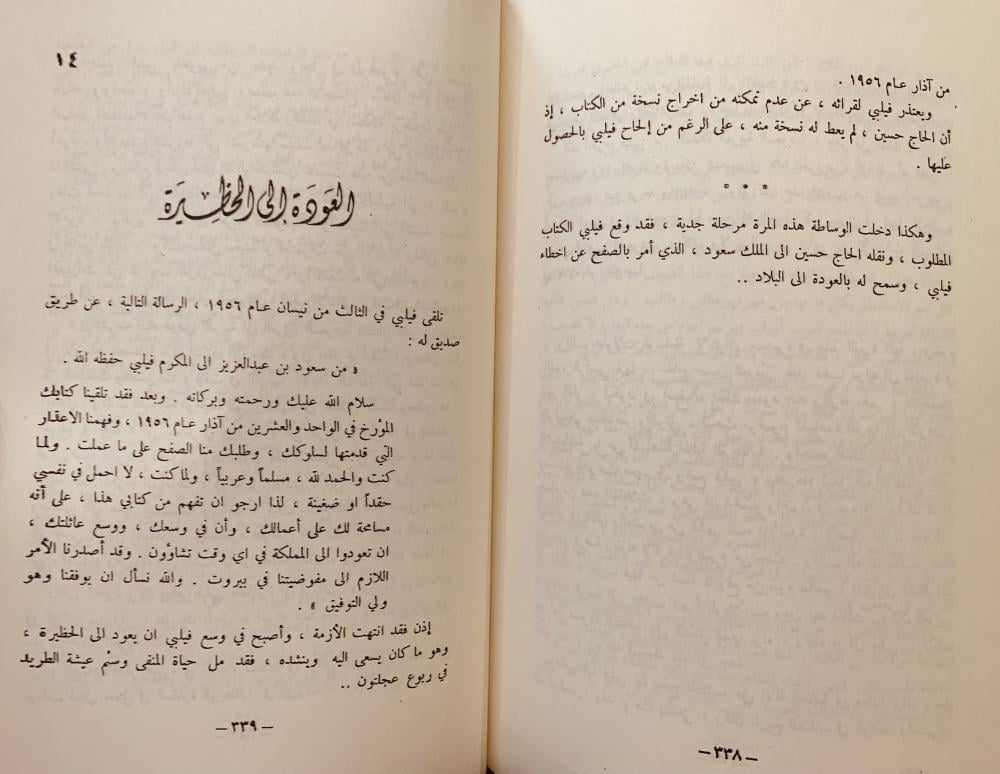 من آذار عام ١٩٥٦ .
ويعتذر فيلبي لقرائه ، عن عدم تمكنه من اخراج نسخة من الكتاب ، إذ
أن الحاج حسين ، لم يعط له نسخة منه ، على الرغم من إلحاح فيلبي بالحصول
عليها .
° ° °
وهكذا دخلت الوساطة هذه المرة مرحلة جدية ، فقد وقع فيلبي الكتاب
المطلوب ، ونقله الحاج حسين الى الملك سعود ، الذي أمر بالصفح عن اخطاء
فيلبي ، وسمح له بالعودة الى البلاد ..
– ٣٣٨ –
١٤
العودة إلى الحظيرة
تلقى فيلبي في الثالث من نيسان عام ١٩٥٦ ، الرسالة التالية ، عن طريق
صديق له :
« من سعود بن عبدالعزيز الى المكرم فيلبي حفظه الله .
سلام الله عليك ورحمته وبركاته . وبعد فقد تلقينا كتابك
المؤرخ في الواحد والعشرين من آذار عام ١٩٥٦ ، وفهمنا الاعتذار
التي قدمتها لسلوكك ، وطلبك منا الصفح على ما عملت . ولما
كنت والحمد لله ، مسلماً وعربياً ، ولما كنت ، لا احمل في نفسي
حقداً او ضغينة ، لذا ارجو ان تفهم من كتابي هذا ، على أنه
مسامحة لك على أعمالك ، وأن في وسعك ، ووسع عائلتك ،
ان تعودوا الى المملكة في اي وقت تشاؤون . وقد أصدرنا الأمر
اللازم الى مفوضيتنا في بيروت . والله نسأل ان يوفقنا وهو
ولي التوفيق » .
إذن فقد انتهت الأزمة ، وأصبح في وسع فيلبي ان يعود الى الحظيرة ،
وهو ما كان يسعى اليه وينشده ، فقد مل حياة المنفى وسئم عيشة الطريد
في ربوع عجلتون ..
– ٣٣٩ –